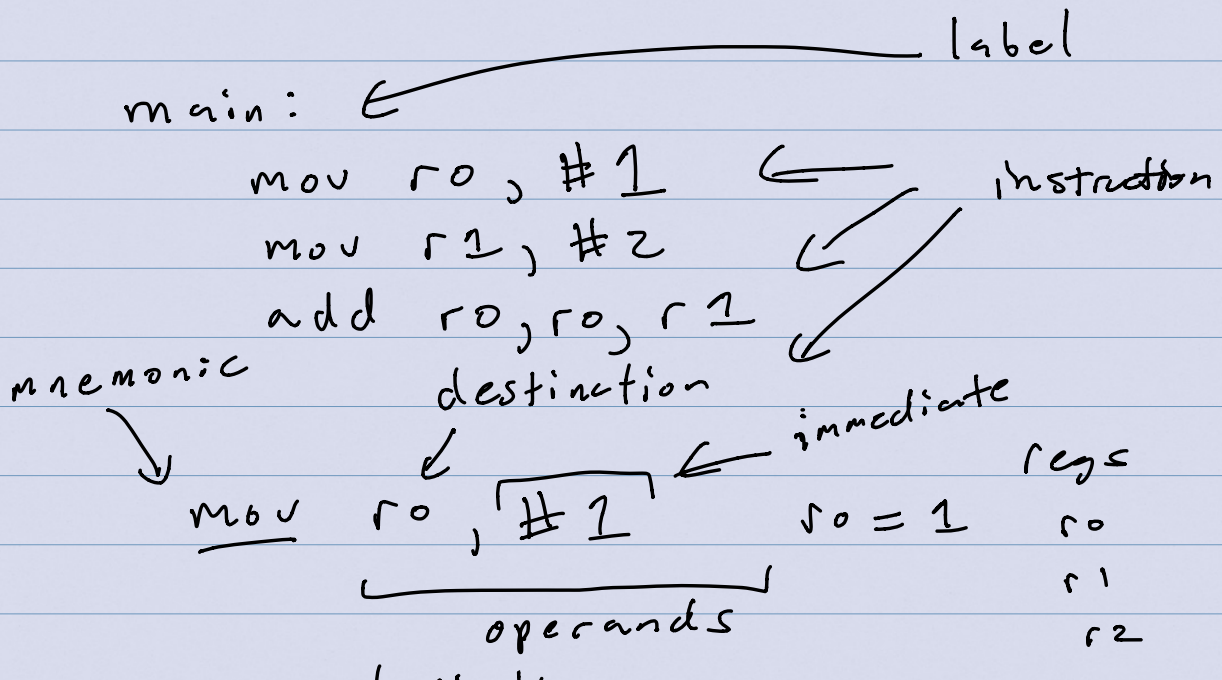 label
main:
mov r0, #1
instruction
mov r1, #2
add r0, r0, r1
mnemonic
destination
immediate
regs
mov r0, #1
r0 = 1
r0
r1
operands
r2